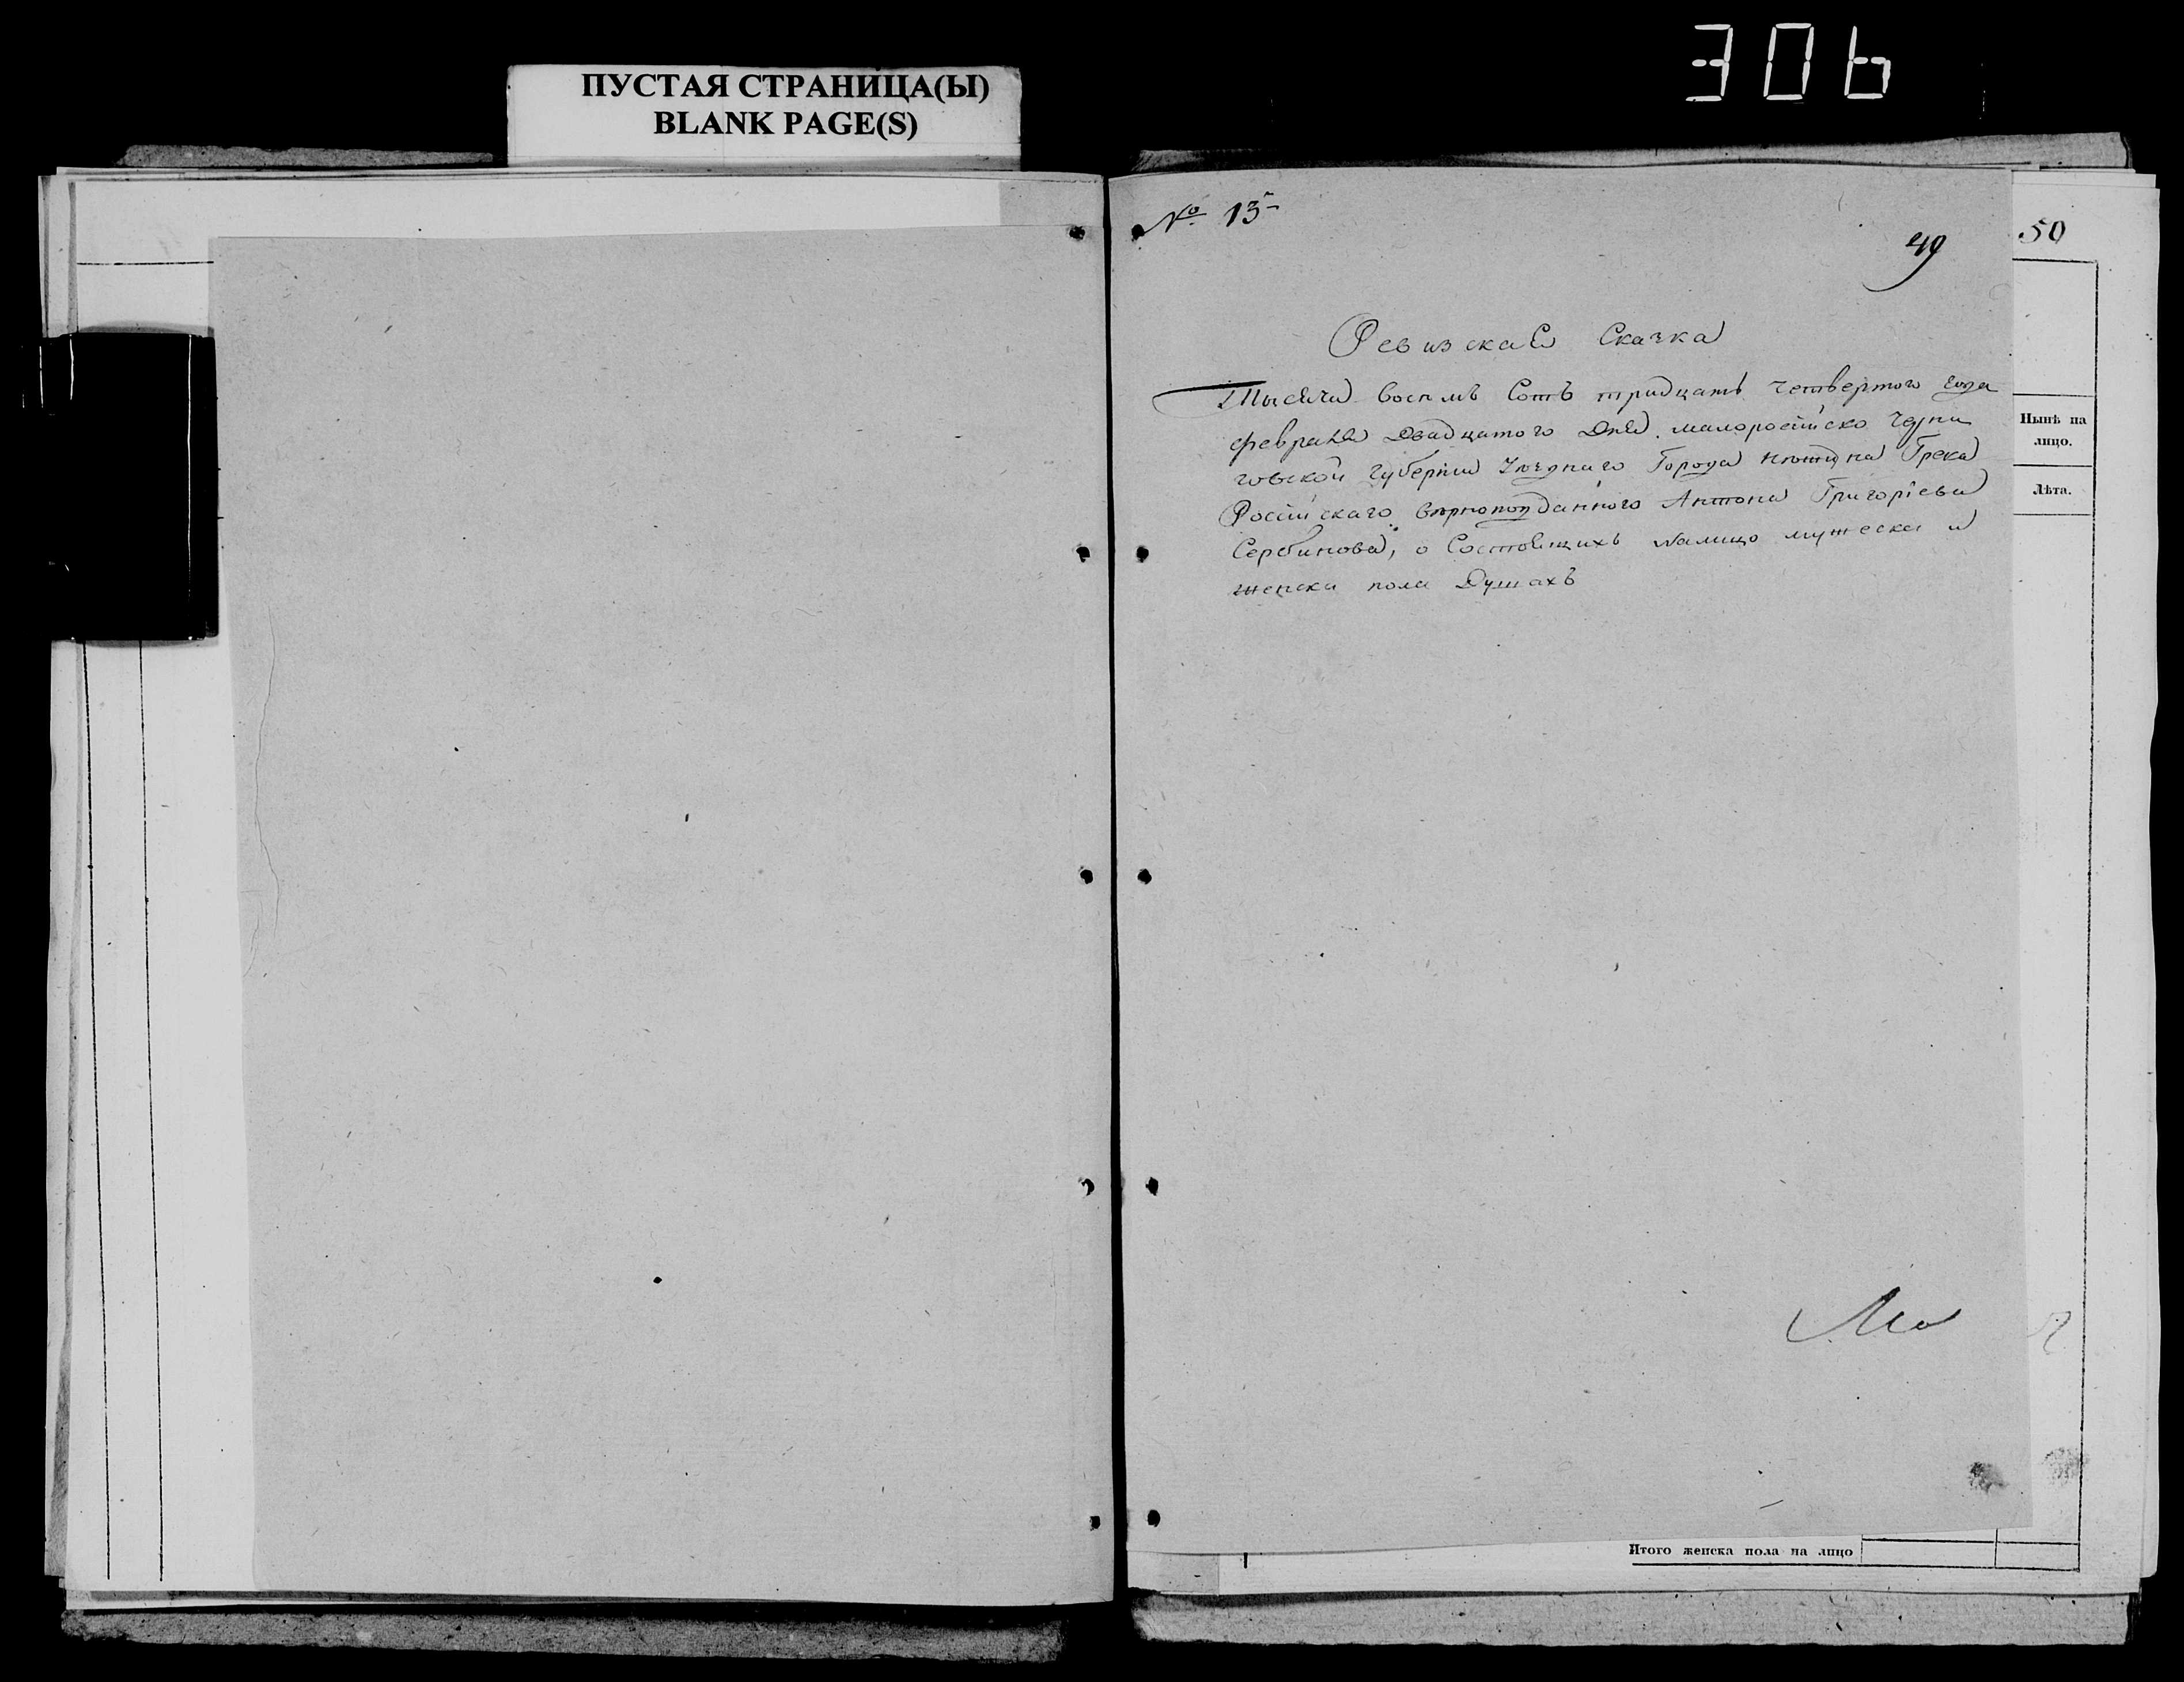 306
ПУСТАЯ СТРАНИЦА(Ы)
BLANK PAGE(S)
№ 13
49
50
Ревизская Сказка
Тысяча восемь Сотъ тридцать четвертого года
февраля Двадцатого Дня. малоросійско Черни
говской Губерніи Уезднаго Города Нежина Грека
Російскаго вернопопданного Антона Григоріева
Сербинова, о Состоящихъ налицо мужеска и
женска пола Душахъ
Нынѣ на
лицо.
Лѣта.
Итого женска пола на лицо